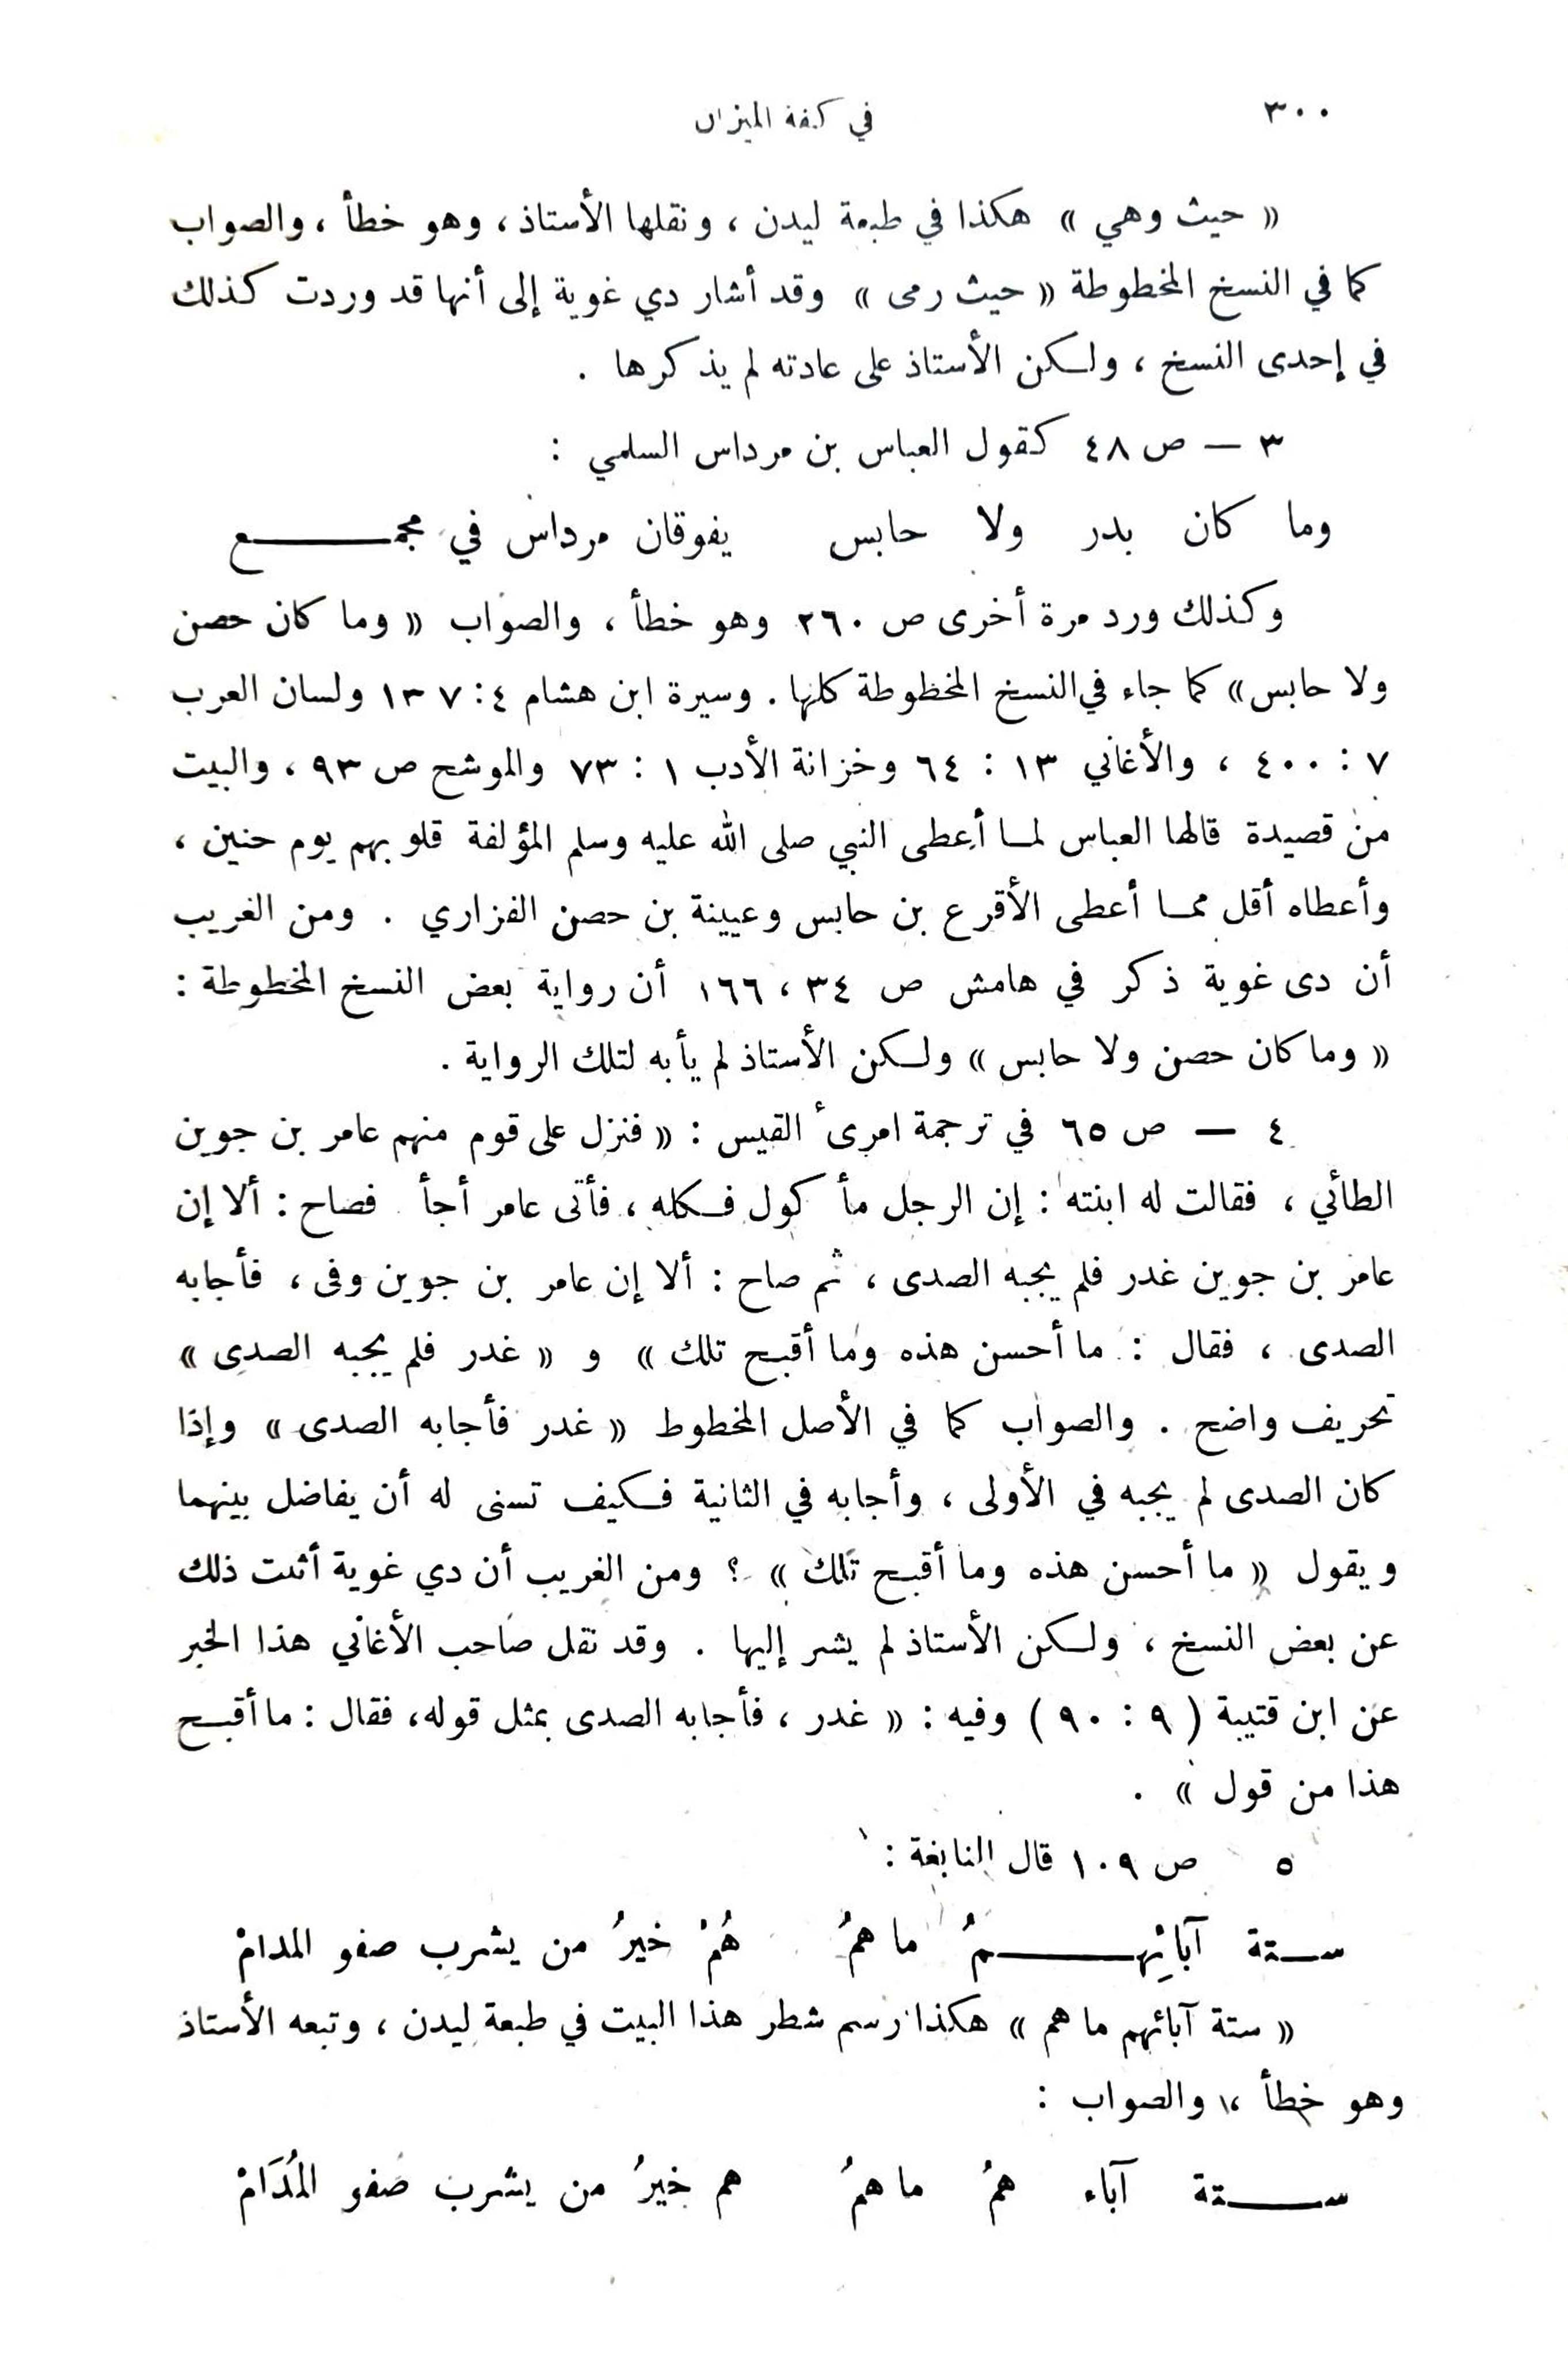 ٣٠٠
في كفة الميزان
« حيث وهي » هكذا في طبعة ليدن ، ونقلها الأستاذ ، وهو خطأ ، والصواب
كما في النسخ المخطوطة « حيث رمى » وقد أشار دي غوية إلى أنها قد وردت كذلك
في إحدى النسخ ، ولكن الأستاذ على عادته لم يذكرها .
٣ — ص ٤٨ كقول العباس بن مرداس السلمي :
وما كان بدر ولا حابس يفوقان مرداس في مجمـــع
وكذلك ورد مرة أخرى ص ٢٦٠ وهو خطأ ، والصواب « وما كان حصن
ولا حابس » كما جاء في النسخ المخطوطة كلها . وسيرة ابن هشام ٤ : ١٣٧ ولسان العرب
٧ : ٤٠٠ ، والأغاني ١٣ : ٦٤ وخزانة الأدب ١ : ٧٣ والموشح ص ٩٣ ، والبيت
من قصيدة قالها العباس لما أعطى النبي صلى الله عليه وسلم المؤلفة قلوبهم يوم حنين ،
وأعطاه أقل مما أعطى الأقرع بن حابس وعيينة بن حصن الفزاري . ومن الغريب
أن دى غوية ذكر في هامش ص ٣٤ ، ١٦٦ أن رواية بعض النسخ المخطوطة :
« وما كان حصن ولا حابس » ولكن الأستاذ لم يأبه لتلك الرواية .
٤ — ص ٦٥ في ترجمة امرىء القيس : « فنزل على قوم منهم عامر بن جوين
الطائي ، فقالت له ابنته : إن الرجل مأكول فكله ، فأتى عامر أجأ فصاح : ألا إن
عامر بن جوين غدر فلم يجبه الصدى ، ثم صاح : ألا إن عامر بن جوين وفى ، فأجابه
الصدى ، فقال : ما أحسن هذه وما أقبح تلك » و « غدر فلم يجبه الصدى »
تحريف واضح . والصواب كما في الأصل المخطوط « غدر فأجابه الصدى » وإذا
كان الصدى لم يجبه في الأولى ، وأجابه في الثانية فكيف تسنى له أن يفاضل بينهما
ويقول « ما أحسن هذه وما أقبح تلك » ؟ ومن الغريب أن دي غوية أثبت ذلك
عن بعض النسخ ، ولكن الأستاذ لم يشر إليها . وقد نقل صاحب الأغاني هذا الخبر
عن ابن قتيبة ( ٩ : ٩٠ ) وفيه : « غدر ، فأجابه الصدى بمثل قوله ، فقال : ما أقبح
هذا من قول » .
٥ ص ١٠٩ قال النابغة :
ســتة آبائِهـــمُ ما همُ هُمْ خيرُ من يشرب صفو المدامْ
« ستة آبائهم ما هم » هكذا رسم شطر هذا البيت في طبعة ليدن ، وتبعه الأستاذ
وهو خطأ ، والصواب :
ســـتة آباء همُ ما همُ هم خيرُ من يشرب صفو المُدَامْ